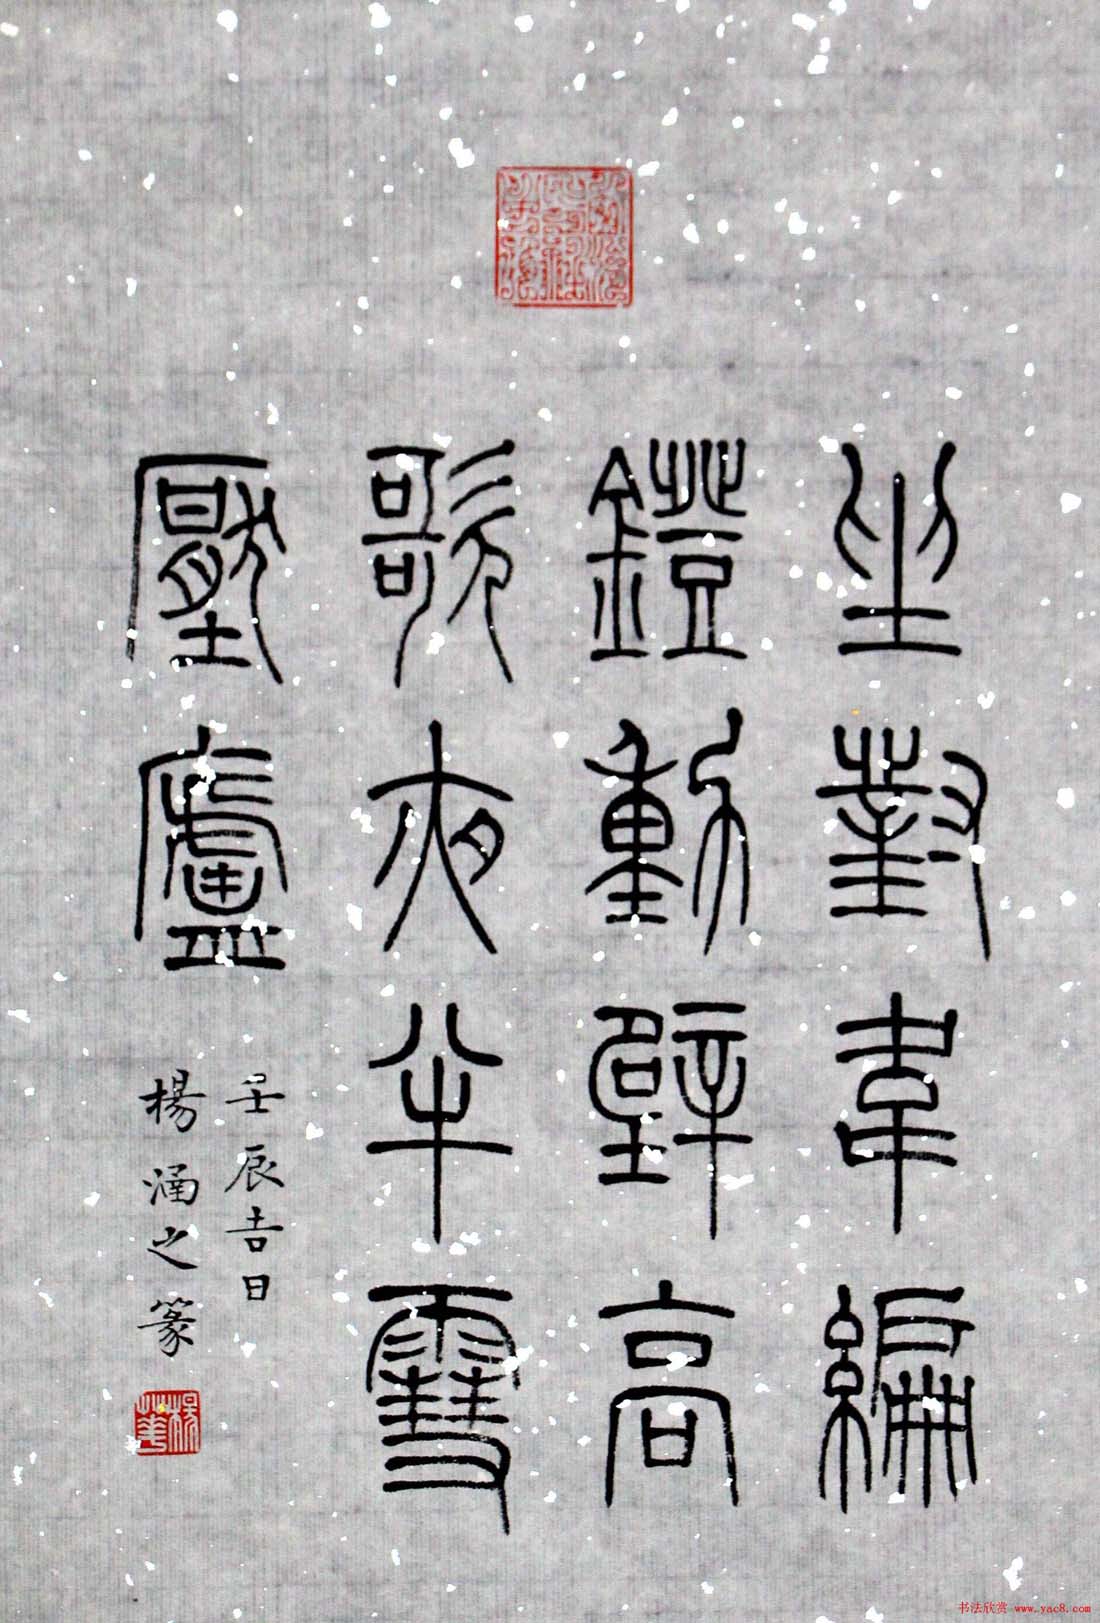 坐對韋編
鐙動壁高
歌夜半雪
壓廬
壬辰吉日
楊涵之篆
书法欣赏 www.yac8.com